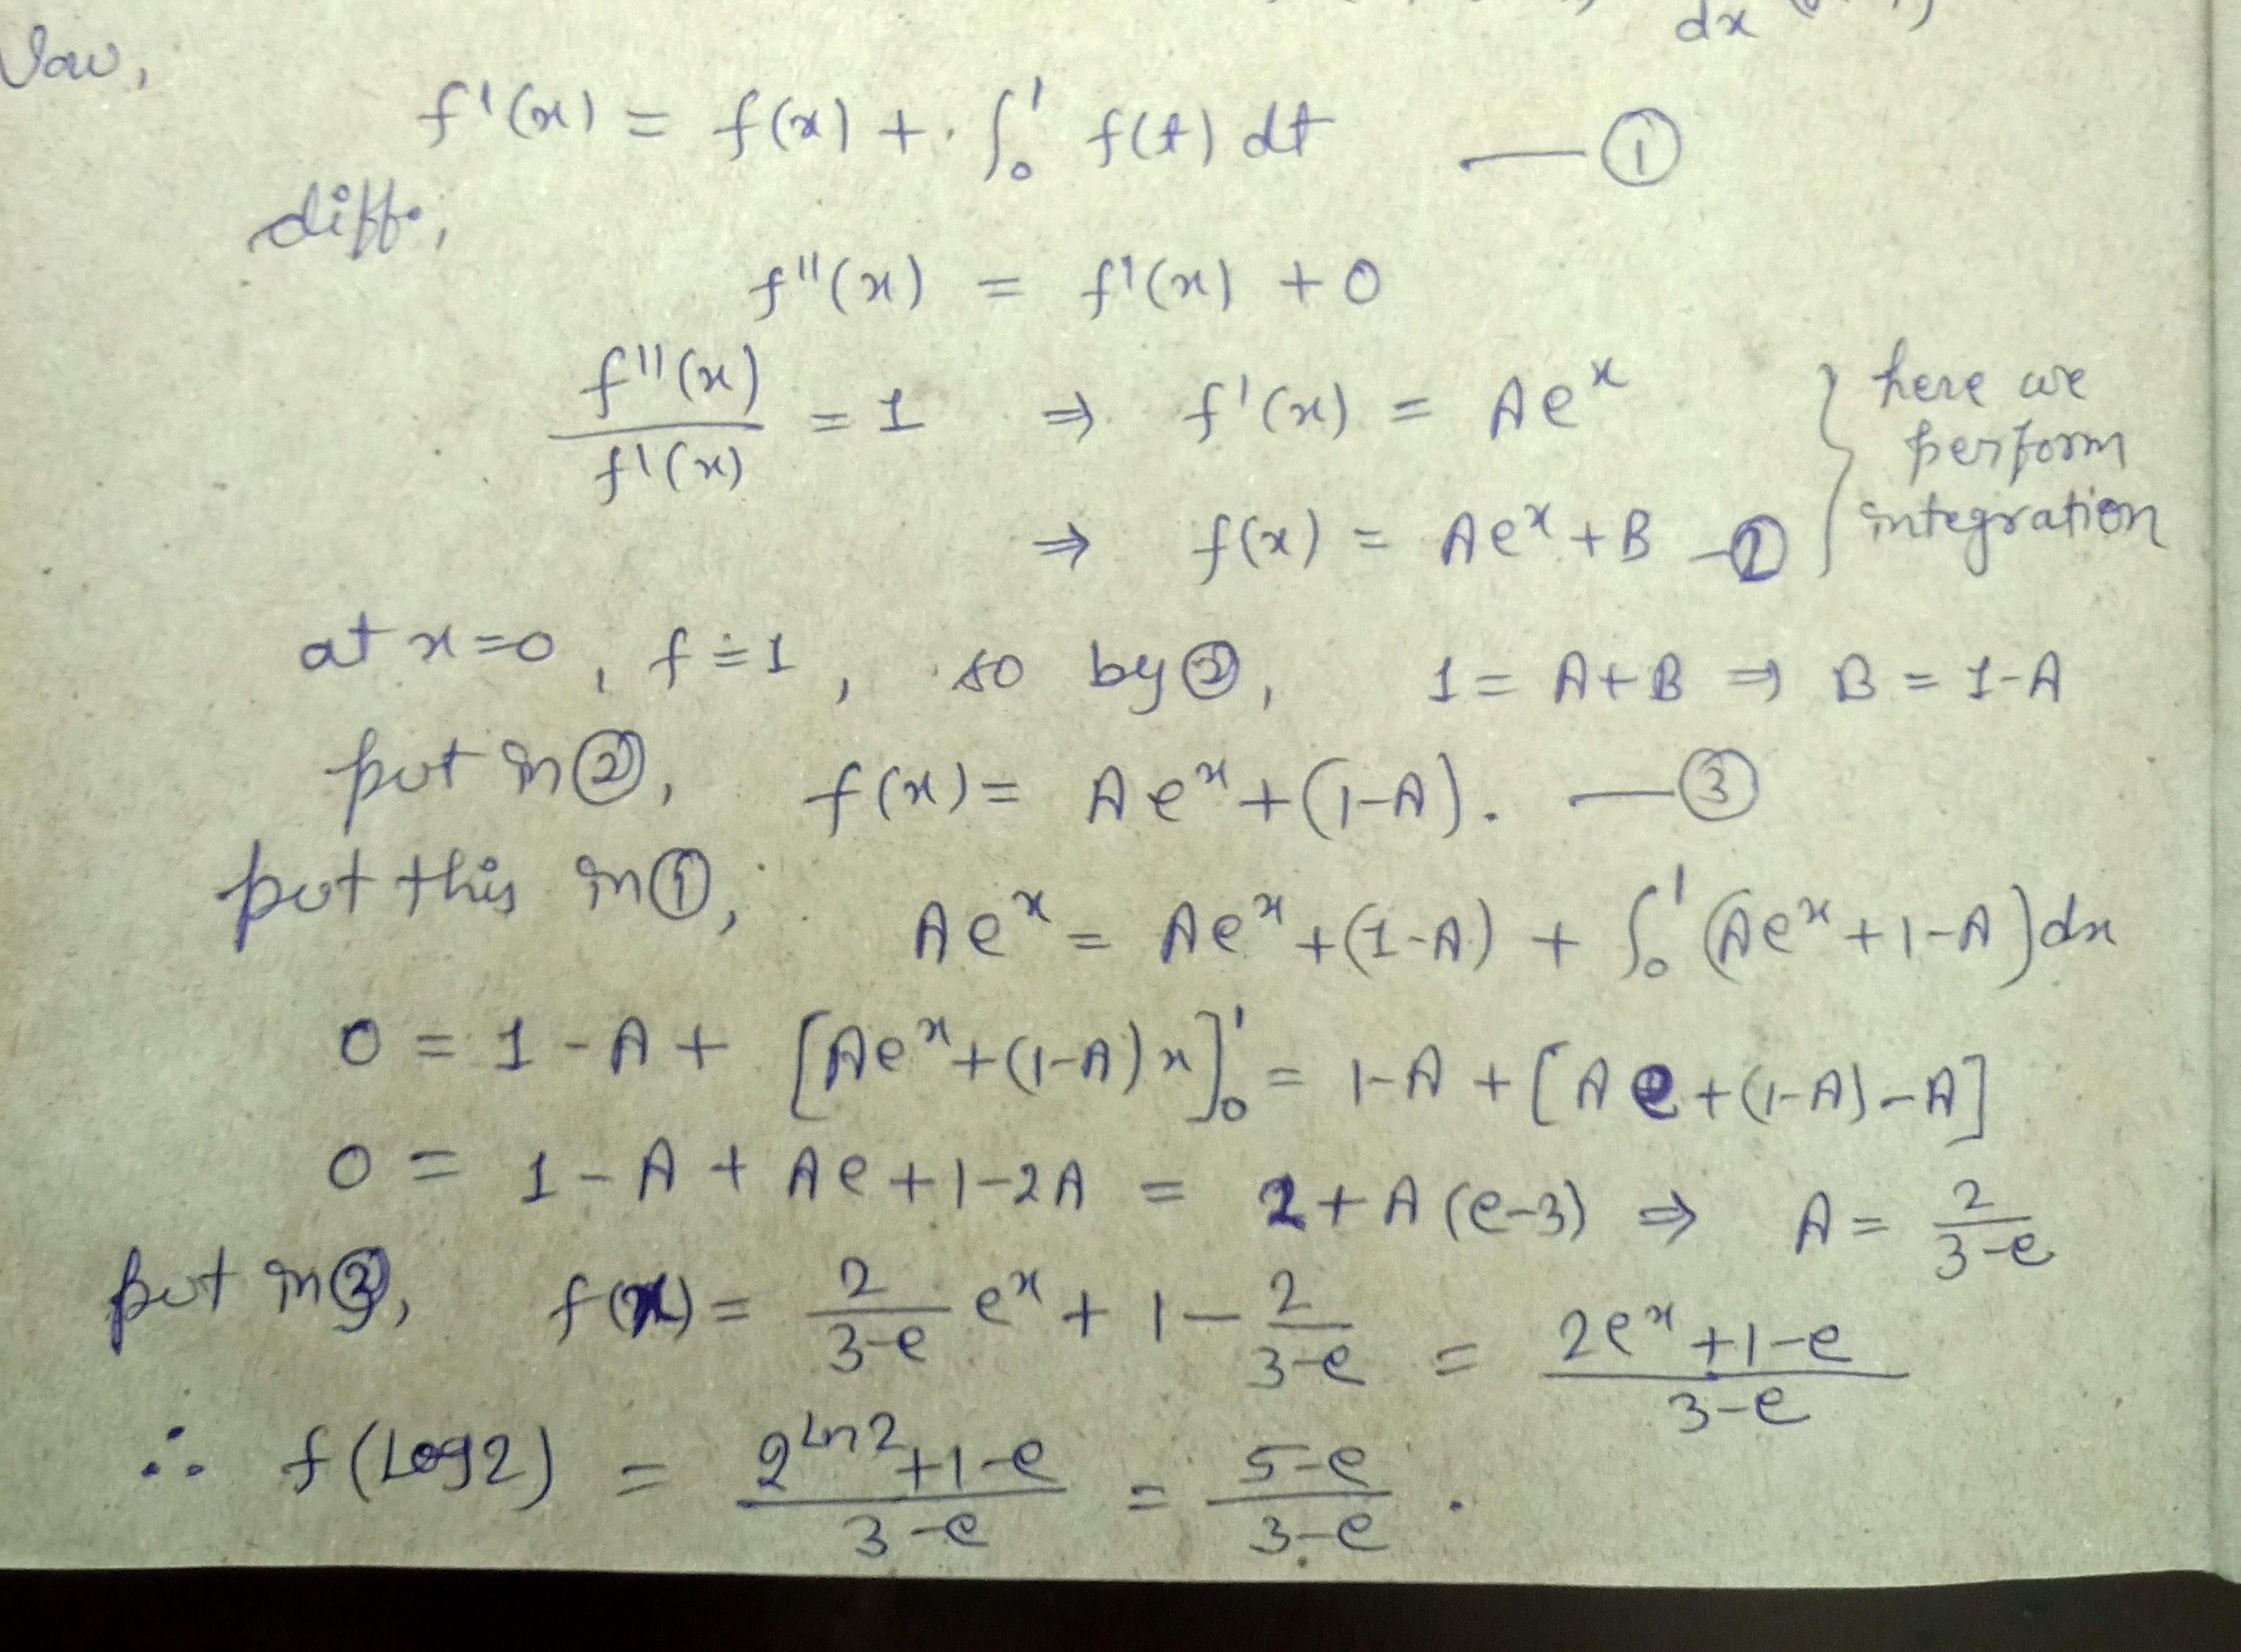 dx
Now,
f'(x) = f(x) + ∫₀¹ f(t) dt —①
diff.,
f''(x) = f'(x) + 0
f''(x)/f'(x) = 1 ⇒ f'(x) = Aeˣ } here we perform integration
⇒ f(x) = Aeˣ + B -②
at x=0, f=1, so by ②, 1 = A+B ⇒ B = 1-A
put in ②, f(x) = Aeˣ + (1-A). —③
put this in ①, Aeˣ = Aeˣ + (1-A) + ∫₀¹ (Aeˣ + 1-A) dx
0 = 1 - A + [Aeˣ + (1-A)x]₀¹ = 1-A + [Ae + (1-A) - A]
0 = 1 - A + Ae + 1 - 2A = 2 + A(e-3) ⇒ A = 2/(3-e)
put in ③, f(x) = 2/(3-e) eˣ + 1 - 2/(3-e) = (2eˣ + 1 - e)/(3-e)
∴ f(Log2) = (2^(Ln2) + 1 - e)/(3-e) = (5-e)/(3-e).